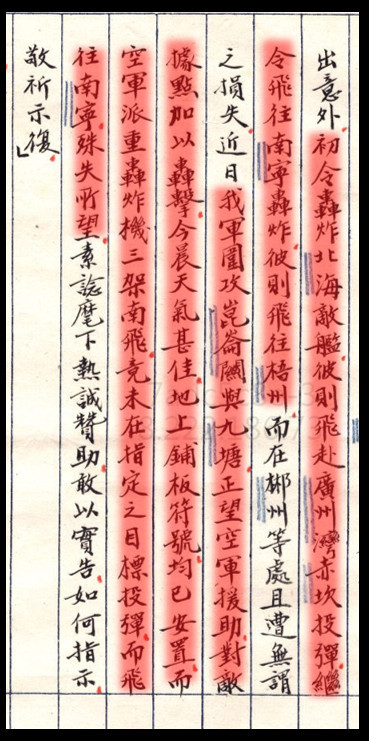 出意外初令轟炸北海敵艦彼則飛赴廣州灣赤坎投彈繼
令飛往南寧轟炸彼則飛往梧州而在郴州等處且遭無謂
之損失近日我軍圍攻崑崙關與九塘正望空軍援助對敵
據點加以轟擊今晨天氣甚佳地上鋪板符號均已安置而
空軍派重轟炸機三架南飛竟未在指定之目標投彈而飛
往南寧殊失所望素諗麾下熱誠贊助敢以實告如何指示
敬祈示復」